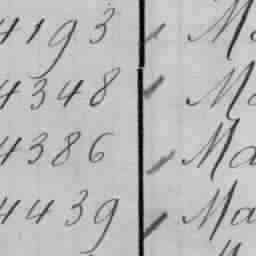 4193 Ma
4348 Ma
4386 Ma
4439 Ma